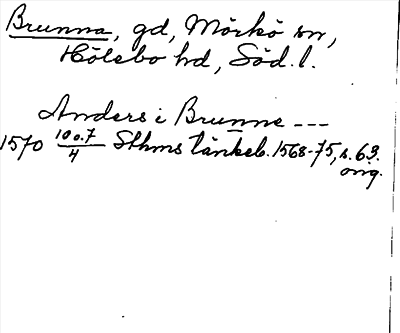 Brunna, gd, Mörkö sn,
Hölebo hd, Söd. l.
Anders i Brunne ---
1570 10 o. 7/4 Sthms tänkeb. 1568-75, s. 63.
orig.